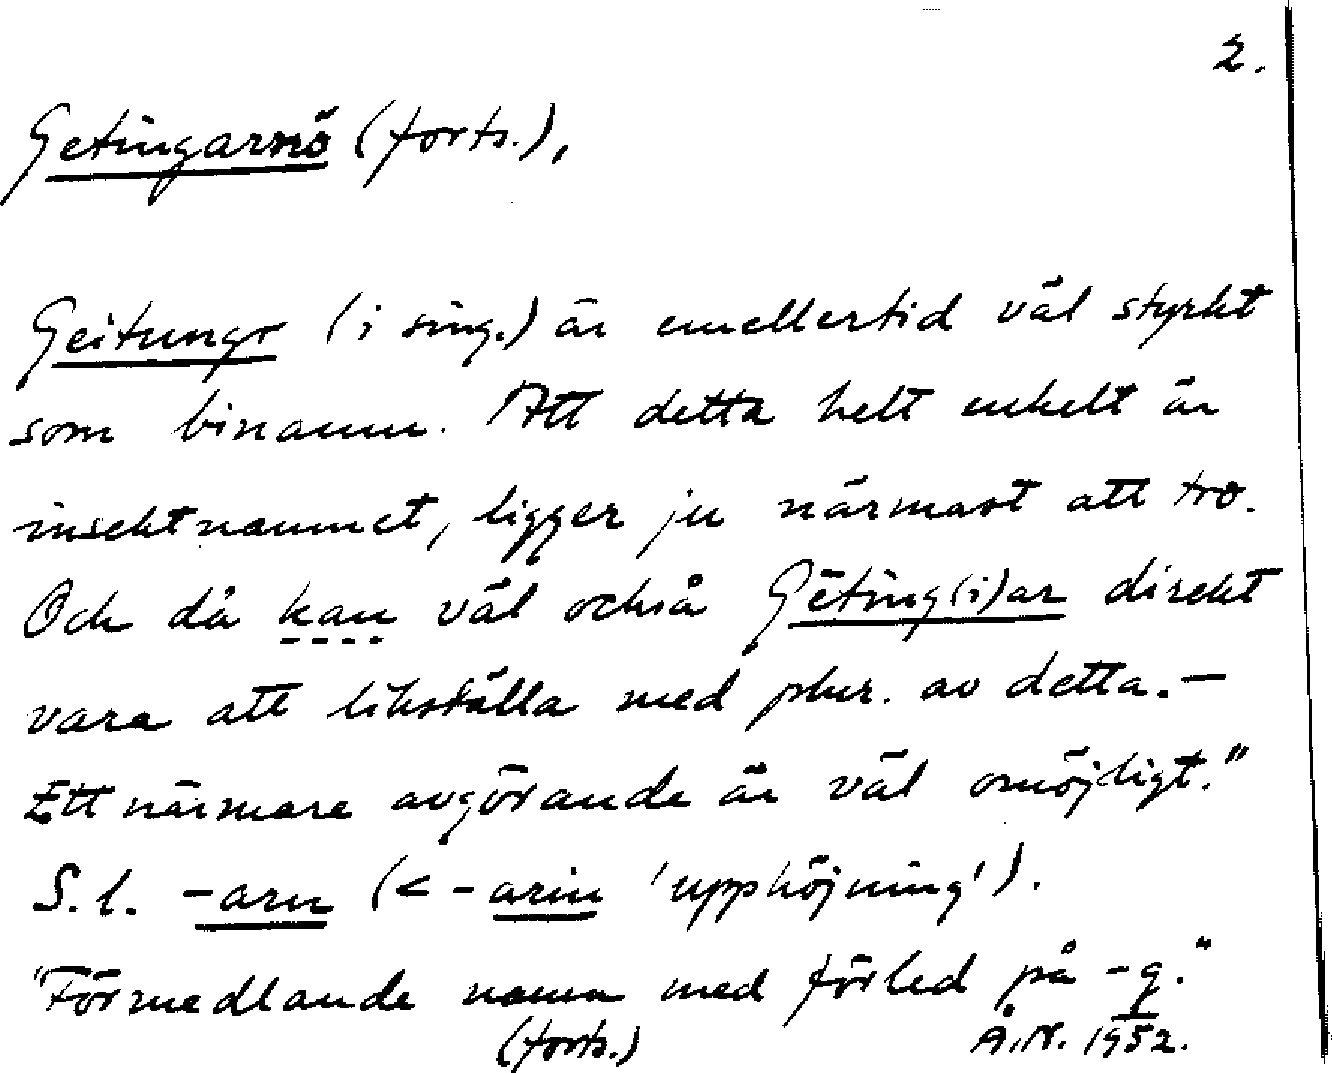 2.
Getingarnö (forts.),
Geitungr (i sing.) är emellertid väl styrkt
som binamn. Att detta helt enkelt är
insektnamnet, ligger ju närmast att tro.
Och då kan väl också Gēting(i)ar direkt
vara att likställa med plur. av detta.—
Ett närmare avgörande är väl omöjligt."
S.l. -arn (< -arin 'upphöjning').
"Förmedlande namn med förled på -g."
(forts.) Å.N. 1952.